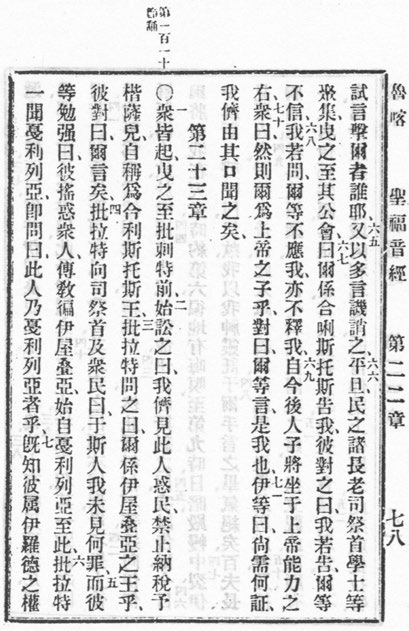 魯喀 聖福音經 第二二章 七八
六五 六六
試言擊爾者誰耶又以多言譏誚之平旦民之諸長老司祭首學士等
六七
聚集曳之至其公會曰爾係合唎斯托斯告我彼對之曰我若告爾等
六八 六九
不信我若問爾等不應我亦不釋我自今後人子將坐于上帝能力之
七十 七一
右衆曰然則爾爲上帝之子乎對曰爾等言是我也伊等曰尙需何証
我儕由其口聞之矣
第二十三章
第一百一十
一 二
〇衆皆起曳之至批剌特前始訟之曰我儕見此人惑民禁止納稅予
三
楷薩兒自稱爲合利斯托斯王批拉特問之曰爾係伊屋叠亞之王乎
四
彼對曰爾言矣批拉特向司祭首及衆民曰于斯人我未見何罪而彼
五 六
等勉强曰彼搖惑衆人傳敎徧伊屋叠亞始自戞利列亞至此批拉特
七
一聞戞利列亞卽問曰此人乃戞利列亞者乎旣知彼属伊羅德之權